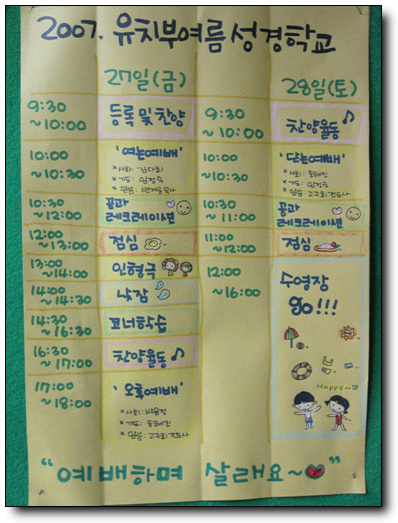 2007. 유치부여름성경학교
27일(금)
28일(토)
9:30 ~10:00 등록 및 찬양
10:00 ~10:30 '여는예배'
*사회:
*기도:
*말씀:
10:30 ~12:00 공과 레크레이션
12:00 ~13:00 점심
13:00 ~14:00 인형극
14:00 ~14:30 낮잠
14:30 ~16:30 코너학습
16:30 ~17:00 찬양율동
17:00 ~18:00 '오후예배'
*사회:
*기도:
*말씀: 고주희전도사
9:30 ~10:00 찬양율동
10:00 ~10:30 '닫는예배'
*사회:
*기도:
*말씀: 고주희전도사
10:30 ~11:00 공과 레크레이션
11:00 ~12:00 점심
12:00 ~16:00 수영장 go!!!
Happy~
"예배하며 살래요~"